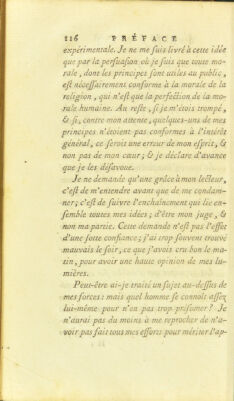 116 PRÉFACE
expérimentale. Je ne me suis livré à cette idée
que par la persuasion où je suis que toute mo-
rale, dont les principes sont utiles au public,
est nécessairement conforme à la morale de la
religion, qui n'est que la perfection de la mo-
rale humaine. Au reste, si je m'étois trompé,
& si, contre mon attente, quelques-uns de mes
principes n'étoient pas conformes à l'intérêt
général, ce seroit une erreur de mon esprit, &
non pas de mon cœur; & je déclare d'avance
que je les désavoue.
Je ne demande qu'une grâce à mon lecteur,
c'est de m'entendre avant que de me condam-
ner; c'est de suivre l'enchaînement qui lie en-
semble toutes mes idées; d'être mon juge, &
non ma partie. Cette demande n'est pas l'effet
d'une sotte confiance; j'ai trop souvent trouvé
mauvais le soir, ce que j'avois cru bon le ma-
tin, pour avoir une haute opinion de mes lu-
mières.
Peut-être ai-je traité un sujet au-dessus de
mes forces: mais quel homme se connoît assez
lui-même pour n'en pas trop présumer? Je
n'aurai pas du moins à me reprocher de n'a-
voir pas fait tous mes efforts pour mériter l'ap-